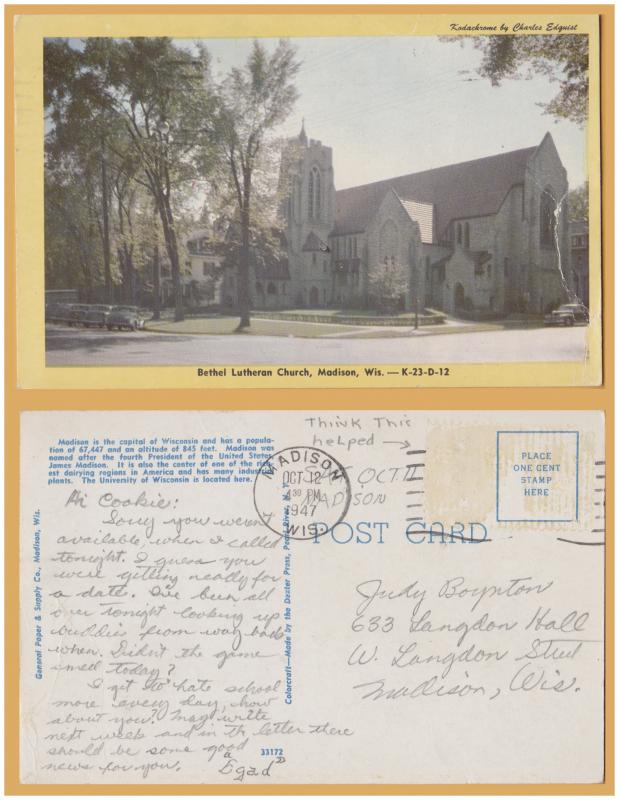 Kodachrome by Charles Edquist
Bethel Lutheran Church, Madison, Wis. — K-23-D-12
Madison is the capital of Wisconsin and has a popula-
tion of 67,447 and an altitude of 845 feet. Madison was
named after the fourth President of the United States
James Madison. It is also the center of one of the rich-
est dairying regions in America and has many industrial
plants. The University of Wisconsin is located here.
Think This
helped →
MADISON
OCT 12
4 30 PM
1947
WIS.
Sat Oct 11
Madison
PLACE
ONE CENT
STAMP
HERE
POST CARD
Hi Cookie:
Sorry you weren't
available, when I called
tonight. I guess you
were getting ready for
a date. I've been all
over tonight looking up
buddies from way back
when. Didn't the game
smell today?
I get to hate school
more every day, how
about you? May write
next week and in th letter there
should be some good
news for you.
"Egad"
Judy Boynton
633 Langdon Hall
W. Langdon Street
Madison, Wis.
General Paper & Supply Co., Madison, Wis.
Colorcraft—Made by the Dexter Press, Pearl River, N. Y.
33172